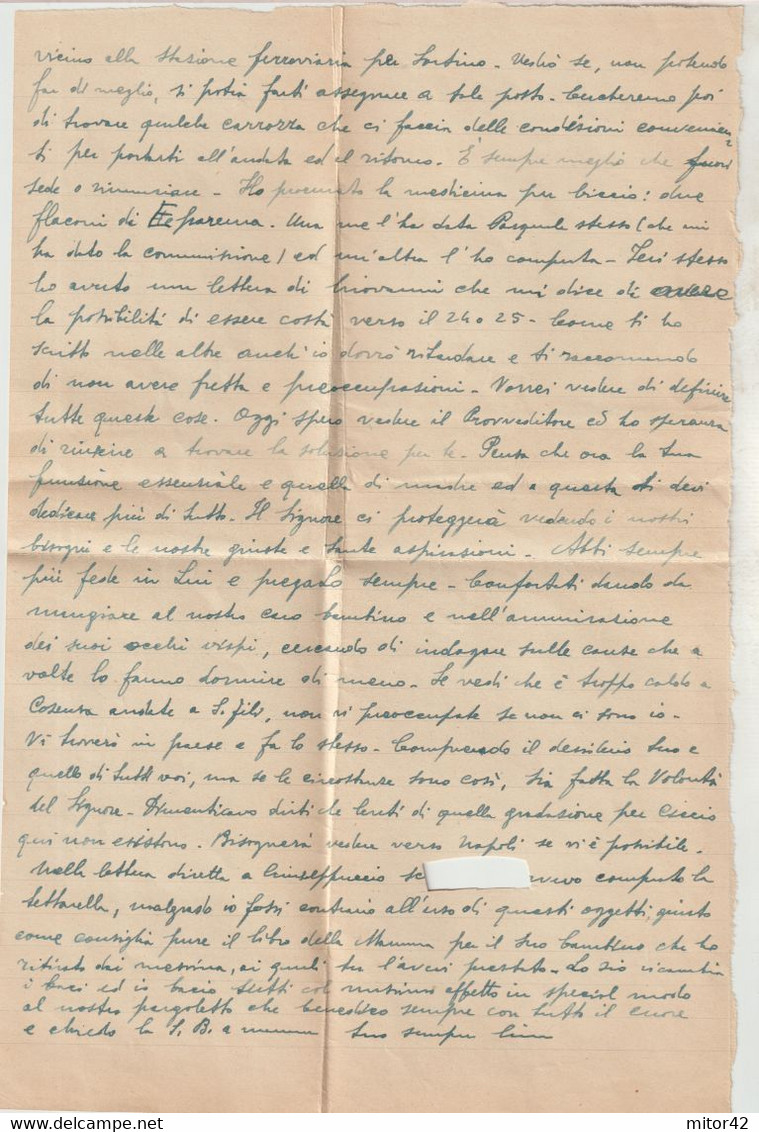 vicino alla stazione ferroviaria per Sortino - Vedrò se, non potendo
far di meglio, si potrà farti assegnare a tale posto - Cercheremo poi
di trovare qualche carrozza che ci faccia delle condizioni convenien=
ti per portarti all'andata ed al ritorno. È sempre meglio che fuori
sede o rinunziare - Ho procurato la medicina per Ciccio: due
flaconi di Eparema. Una me l'ha data Pasquale stesso (che mi
ha dato la commissione) ed un'altra l'ho comprata - Ieri stesso
ho avuto una lettera di Giovanni che mi dice di avere
la possibilità di essere costà verso il 24 o 25 - Come ti ho
scritto nelle altre anch'io dovrò ritardare e ti raccomando
di non avere fretta e preoccupazioni - Vorrei vedere di definire
tutte queste cose. Oggi spero vedere il Provveditore ed ho speranza
di riuscire a trovare la soluzione per te - Pensa che ora la tua
funzione essenziale e quella di madre ed a questa ti devi
dedicare più di tutto. Il Signore ci proteggerà vedendo i nostri
bisogni e le nostre giuste e sante aspirazioni - Abbi sempre
più fede in Lui e pregalo sempre - Confortati dando da
mangiare al nostro caro bambino e nell'ammirazione
dei suoi occhi vispi, cercando di indagare sulle cause che a
volte lo fanno dormire di meno - Se vedi che è troppo caldo a
Cosenza andate a S. Fili, non vi preoccupate se non ci sono io -
Vi troverò in paese e fa lo stesso - Comprendo il desiderio tuo e
quello di tutti voi, ma se le circostanze sono così, sia fatta la Volontà
del Signore - Dimenticavo dirti che lenti di quella gradazione per Ciccio
qui non esistono. Bisognerà vedere verso Napoli se vi è possibile.
Nella lettera diretta a Giuseppuccio avevo comprato la
tettarella, malgrado io fossi contrario all'uso di questi oggetti, giusto
come consiglia pure il libro della Mamma per il suo bambino che ho
ritirato dai Messina, ai quali tu l'avevi prestato - Lo zio ricambia
i baci ed io bacio tutti col massimo affetto in special modo
al nostro pargoletto che benedico sempre con tutto il cuore
e chiedo la S. B. a mamma tuo sempre
delcampe.net
mitor42